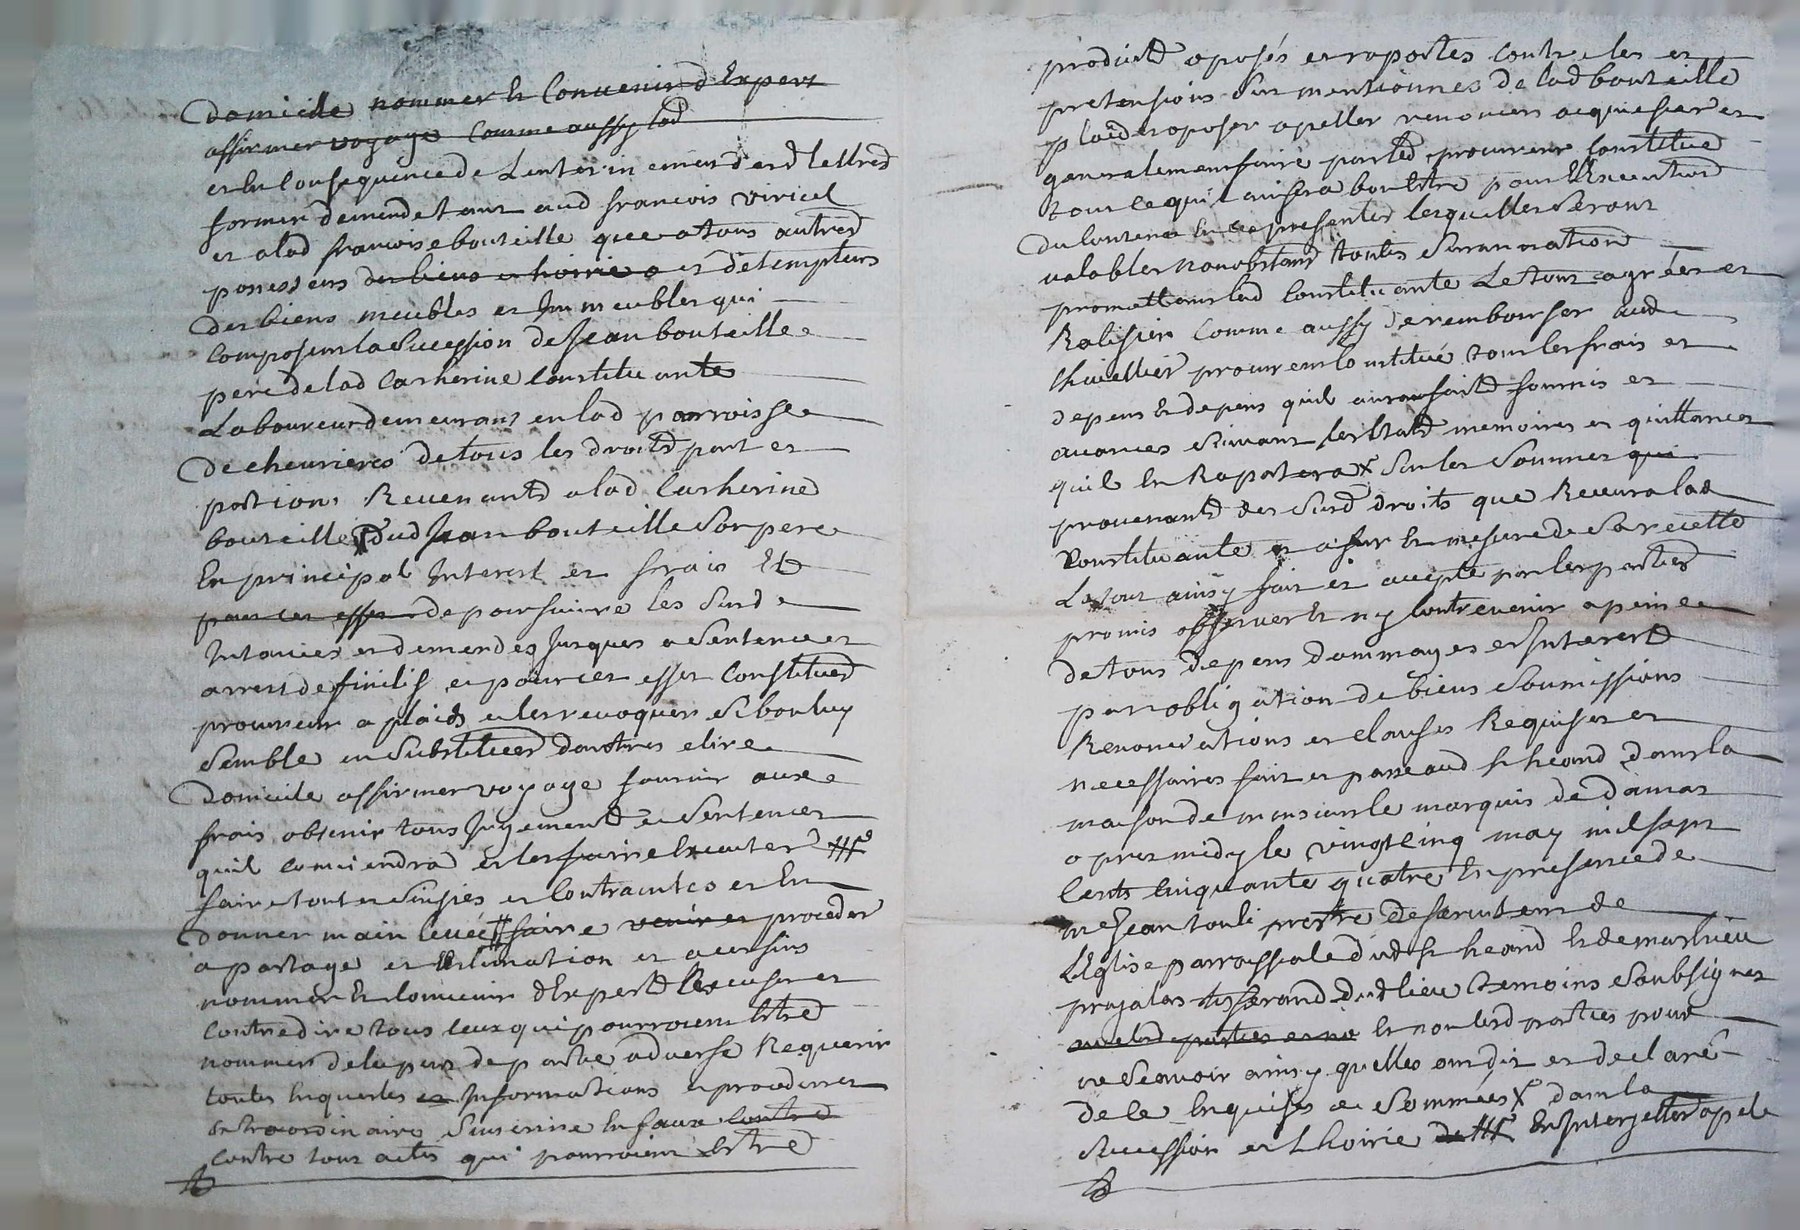 Domicile nommer et Convenir d'Expert
affirmer voyage comme aussy lad
et En Consequence de Lenterinement desd lettres
former demende tant aud francois viricel
et a lad francoise bouteille que a tous autres
possesseurs des biens et hoirie et detempteurs
des biens meubles et Immeubles qui
composent la Succession de Jean bouteille
pere de lad Catherine Constituante
Laboureur demeurant en lad parroisse
de chevrieres de tous les droits part et
portion Revenants a lad Catherine
bouteille dud Jean bouteille Son pere
En principal Interest et frais Et
pour cet effet de poursuivre les Susd
Instances et demendes Jusques a Sentence et
arrest definitif et pour cet effet Constituer
procureur a plaids et les revoquer Si bon luy
Semble en Substituer d'autres elire
Domicile affirmer voyage fournir aux
frais obtenir tous Jugements et Sentences
quil conviendra et les faire Executer
faire toutes Saisies et Contraintes et En
donner main levée faire venir et proceder
a partage et Estimation et aversins
nommer et Convenir d'Experts Recuser et
Contredire tous ceux qui pourroient Etre
nommer de la part de partie adverse Requerir
toutes Enquestes et Informations et procedures
Extraordinaire Sinscrire En faux contre
contre tout actes qui pourroient Estre
produits oposés et raportes contre les et
pretensions Sus mentionnes de lad bouteille
plaider oposer apeller renoncer acquiescer et
generalement faire par led procureur Constitué
tout ce quil avisera bon Etre pour l'Execution
du Contenu En ces presentes lesquelles Seront
valables nonobstant toutes Surannation
promettant lad Constituante Le tout agréer et
Ratifier Comme aussy de rembourser aud
procureur Constitué tous les frais et
depens Et depens quil auroit faits fournis et
avances Suivant les Etats memoires et quittances
quil En Raportera Sur les Sommes qui
provenants des Susd droits que Recevra lad
Constituante et a fur Et mesure de Sa recette
Le tout ainsy fait et accepté par les parties
promis observer Et ny Contrevenir a peine
de tous depens dommages et Interests
par obligation de biens Soumissions
Renonciations et clauses Requises et
necessaires fait et passé aud St heand dans la
maison de monsieur le marquis de damas
apres midy le vingt cinq may mil sept
Cents Cinquante quatre En presence de
mre Jean touli prestre desserviteur de
L'Eglise parroissiale dud St heand Et de mathieu
tisserand dud lieu temoins Soubsignes
Et non lesd parties pour
ne Scavoir ainsy quelles ont dit et declaré
de ce Enquises et Sommées dans la
Succession et hoirie En Interjetter apel